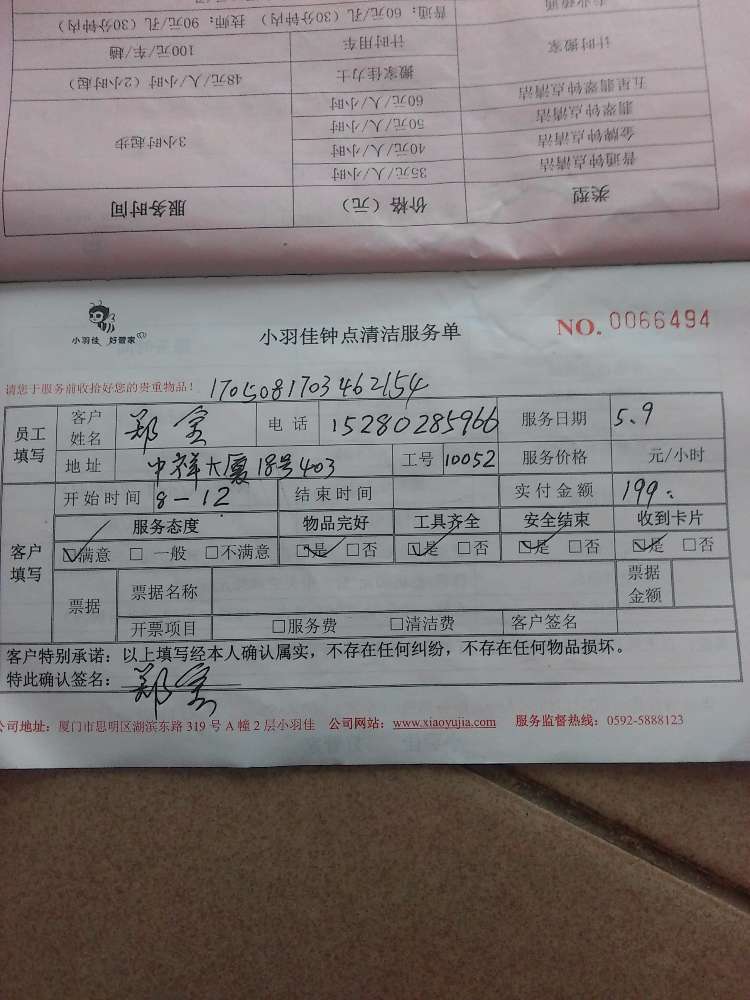 专业疏通
普通：60元/孔（30分钟内） 技师：90元/孔（30分钟内）
计时搬家 计时用车 100元/车/趟
搬家佳力士 48元/人/小时（2小时起）
五星翡翠钟点清洁 60元/人/小时
翡翠钟点清洁 50元/人/小时
金牌钟点清洁 40元/人/小时 3小时起步
普通钟点清洁 35元/人/小时
类型 价格（元） 服务时间
小羽佳 好管家
小羽佳钟点清洁服务单
NO. 0066494
请您于服务前收拾好您的贵重物品！ 1705081703462154
员工填写 客户姓名 郑 电话 15280285966 服务日期 5.9
地址 中祥大厦18号403 工号 10052 服务价格 元/小时
开始时间 8-12 结束时间 实付金额 199.
客户填写 服务态度 物品完好 工具齐全 安全结束 收到卡片
☑满意 □一般 □不满意 ☑是 □否 ☑是 □否 ☑是 □否 ☑是 □否
票据 票据名称 票据金额
开票项目 □服务费 □清洁费 客户签名
客户特别承诺：以上填写经本人确认属实，不存在任何纠纷，不存在任何物品损坏。
特此确认签名： 郑
公司地址：厦门市思明区湖滨东路 319 号 A 幢 2 层小羽佳 公司网站：www.xiaoyujia.com 服务监督热线：0592-5888123